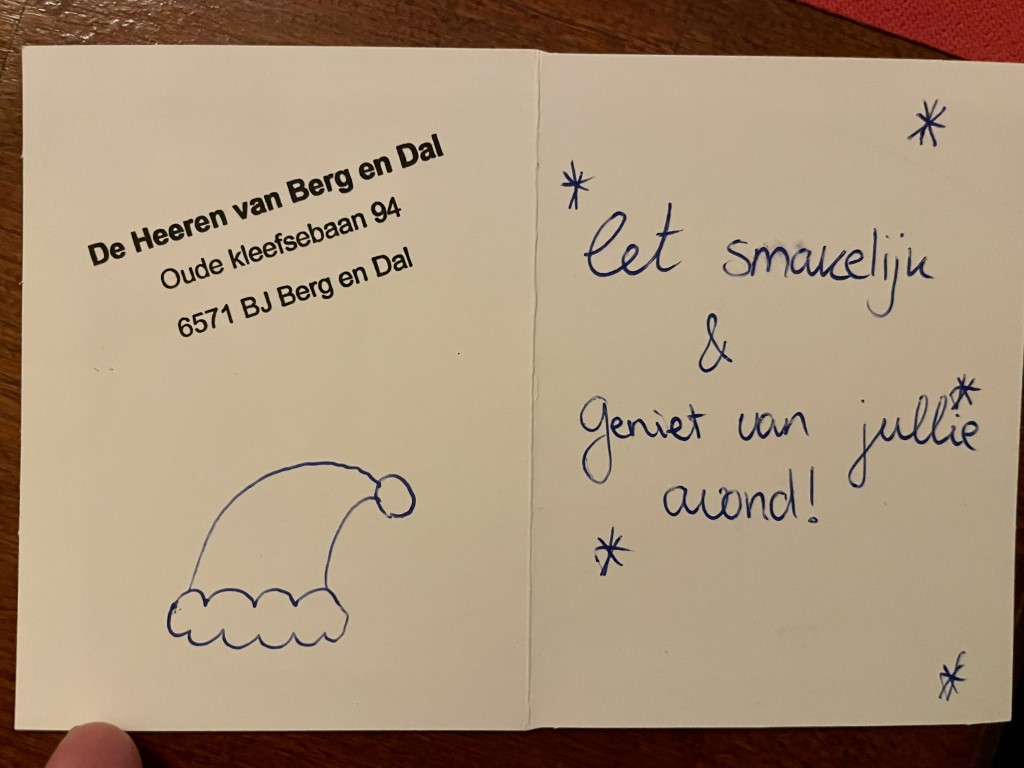 De Heeren van Berg en Dal
Oude kleefsebaan 94
6571 BJ Berg en Dal
Eet smakelijk
&
Geniet van jullie
avond!